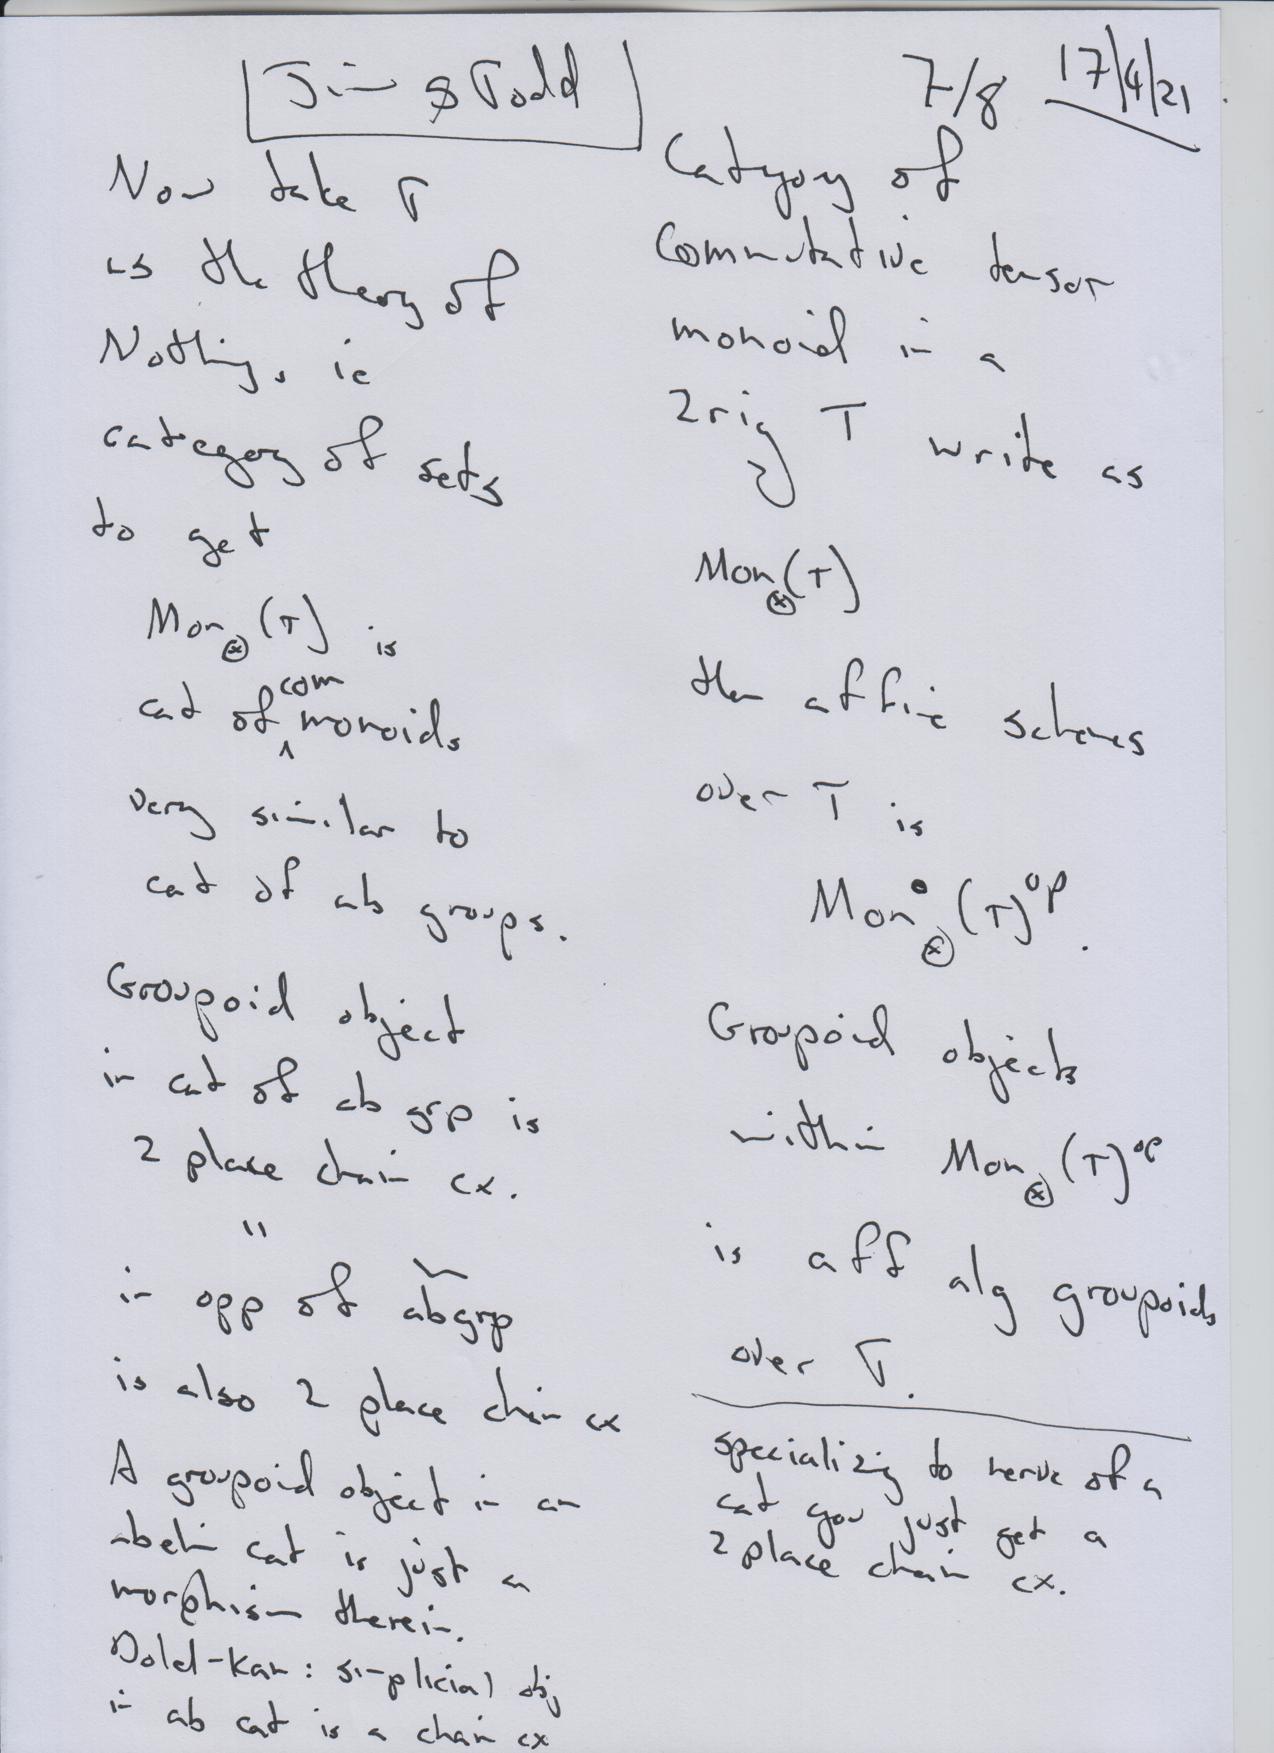 Jim & Todd
7/8 17/4/21
Now take T
is the theory of
Nothing, ie
category of sets
to get
Mon⊗(T) is
cat of com monoids
very similar to
cat of ab groups.
Groupoid object
in cat of ab grp is
2 place chain cx.
"
in opp of ab grp
is also 2 place chain cx
A groupoid object in an
abelin cat is just a
morphism therein.
Dold-Kan: simplicial obj
in ab cat is a chain cx
Category of
commutative tensor
monoid in a
2rig T write as
Mon⊗(T)
then affine schemes
over T is
Mon⊗(T)^op.
Groupoid objects
within Mon⊗(T)^op
is aff alg groupoids
over T.
specializing to nerve of a
cat you just get a
2 place chain cx.